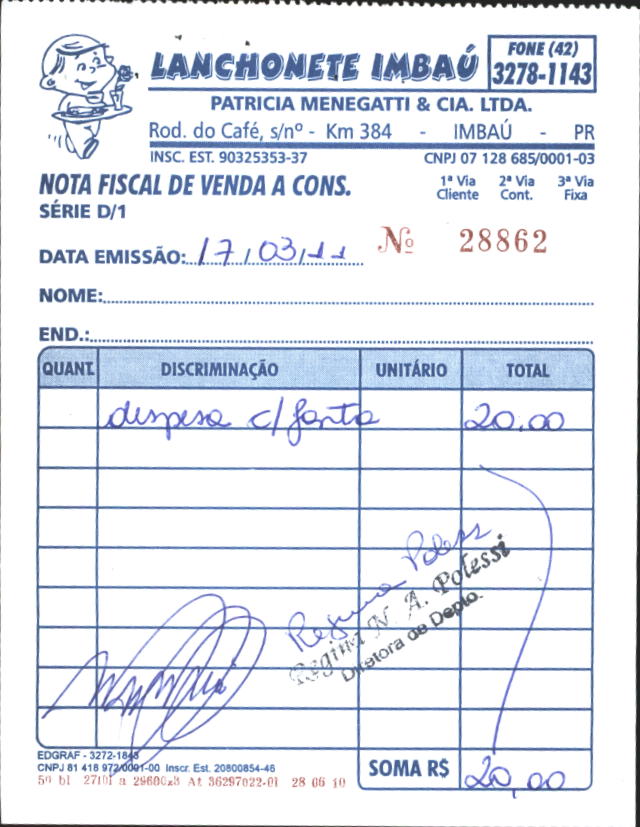 LANCHONETE IMBAÚ
FONE (42)
3278-1143
PATRICIA MENEGATTI & CIA. LTDA.
Rod. do Café, s/nº - Km 384 - IMBAÚ - PR
INSC. EST. 90325353-37 CNPJ 07 128 685/0001-03
NOTA FISCAL DE VENDA A CONS.
1ª Via Cliente 2ª Via Cont. 3ª Via Fixa
SÉRIE D/1
DATA EMISSÃO: 17/03/11 Nº 28862
NOME:
END.:
QUANT. DISCRIMINAÇÃO UNITÁRIO TOTAL
despesa c/ janta 20,00
Regina Poless
Regina N. A. Polessi
Diretora de Depto.
EDGRAF - 3272-1848
CNPJ 81 418 972/0001-00 Inscr. Est. 20800854-46
5º bl 27101 a 29600x3 At 36297022-01 28 06 10
SOMA R$ 20,00